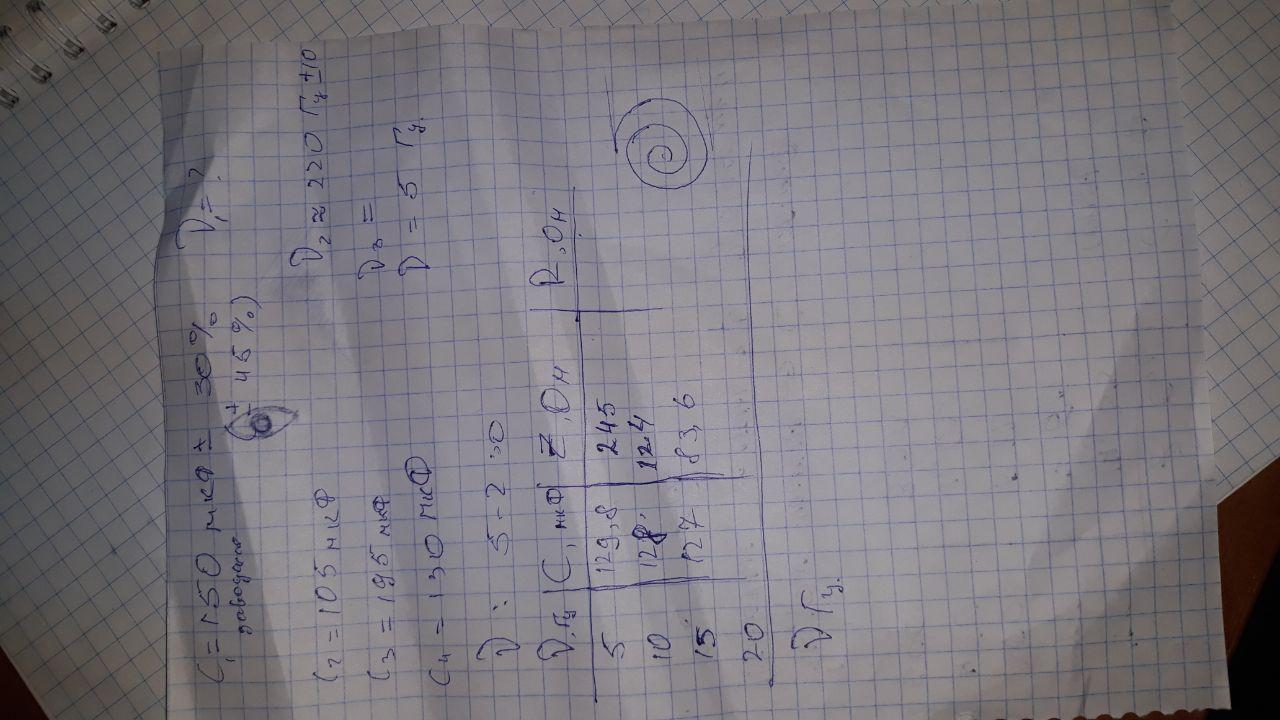 C₁ = 150 мкФ ± 30% ν₁ = ?
заводское (± 45%)
C₂ = 105 мкФ ν₂ ≈ 220 Гц ±10
C₃ = 195 мкФ ν₃ =
C₄ = 130 мкФ ν = 5 Гц.
ν : 5 - 230
ν, Гц C, мкФ Z, Ом R, Ом
5 129,8 245
10 128 124
15 127 83,6
20
ν Гц.